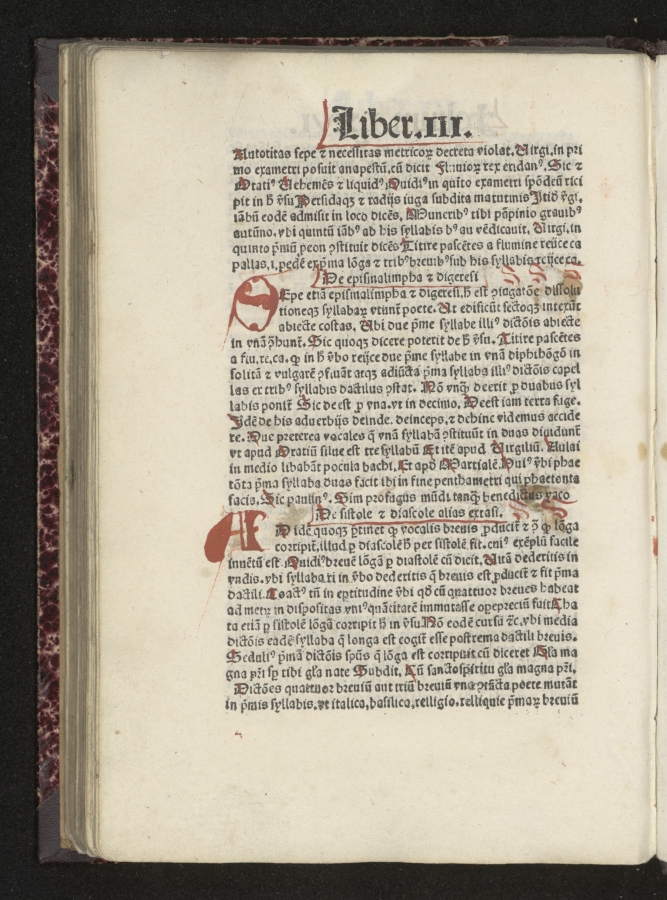 Liber.III.
Autoritas sepe ⁊ necessitas metricoꝝ decreta violat. Virgi. in pri
mo exametri posuit anapestū. cū dicit Fluuioꝝ rex eridanꝰ. Sic ⁊
Oratiꝰ Vehemēs ⁊ liquidꝰ, Ouidiꝰ in quīto exametri spōdeū rici
pit in h̄ v̄su Persidaqꝫ ⁊ radijs iuga subdita matutinis
iābū eodē admisit in loco dicēs. Muneribꝰ tibi pāpinio grauibꝰ
autūno. vbi quintū iābꝰ ab his syllabis hꝰ au vēdicauit. Virgi. in
quinto p̄mū peon ꝯstituit dicēs Titire pascētes a flumine reijce ca
pallas. i. pedē ex p̄ma lōga ⁊ tribꝰ breuibꝰ sub his syllabis reijce ca.
De episinalimpha ⁊ digeresi
SEpe etiā episinalimpha ⁊ digeresi. h̄ est ꝯiugatōe dissolu
tioneqꝫ syllabaꝝ vtunt̄ poete. Vt edificūt sectoqꝫ intexūt
abiecte costas. Vbi due p̄me syllabe illiꝰ dictōis abiecte
in vnā ꝯ̄hunt̄. Sic quoqꝫ dicere poterit de h̄ v̄su. Titire pascētes
a flu. re. ca. ꝙ in h̄ v̄bo reijce due p̄me syllabe in vnā diphthōgō in
solitā ⁊ vulgarē ꝯfusāt atqꝫ adiūcta p̄ma syllaba illiꝰ dictōis capel
las ex tribꝰ syllabis dactilus ꝯstat. Nō vnqꝫ deerit ꝓ duabus syl
labis ponit̄ Sic deest ꝓ vna. vt in decimo. Deest iam terra fuge.
Idē de his aduerbijs deinde. deinceps. ⁊ dehinc videmus accide
re. Due preterea vocales q̄ vnā syllabā ꝯstituūt in duas diuidunt̄
vt apud Oratiū silue est tresyllabū Et itē apud Virgiliū. Aulai
in medio libabāt pocula bachi. Et apd̄ Martialē. Huiꝰ v̄bi phae
tōta p̄ma syllaba duas facit ibi in fine penthametri qui phaetonta
facis. Sic paulinꝰ. Sim profugus mūdi tanqꝫ benedictus vaco
De sistole ⁊ diascole alias extasi.
AD idē quoqꝫ ꝑtinet ꝙ vocalis breuis ꝓducit̄ ⁊ ꝯ̄ ꝙ lōga
corripit̄, illud ꝑ diascolē h̄ per sistolē fit. cuiꝰ exēplū facile
inuētū est. Ouidiꝰ breuē lōgā ꝑ diastolē cū dicit. Vitā dederitis in
vndis. vbi syllaba ri in v̄bo dederitis q̄ breuis est ꝓducit̄ ⁊ fit p̄ma
dactili. Coactꝰ tn̄ in eptitudine v̄bi qd̄ cū quattuor breues habeat
ad metrū in dispositas vniꝰ quātitatē immutasse opepreciū fuit. Cha
ta etiā ꝑ sistolē lōgā corripit h̄ in v̄su. Nō eodē cursu ⁊c. vbi media
dictōis eadē syllaba q̄ longa est cogit̄ esse postrema dactili breuis.
Seduliꝰ p̄mā dictōis spūs q̄ lōga est corripuit cū diceret Gl̄a ma
gna pr̄i sp̄ tibi gl̄a nate Subdit. Cū sancto spiritu gl̄a magna pr̄i.
Dictōes quattuor breuiū aut triū breuiū vna ꝯiūcta poete mutāt
in p̄mis syllabis. vt italica, basilica, relligio. relliquie p̄maꝝ breuiū